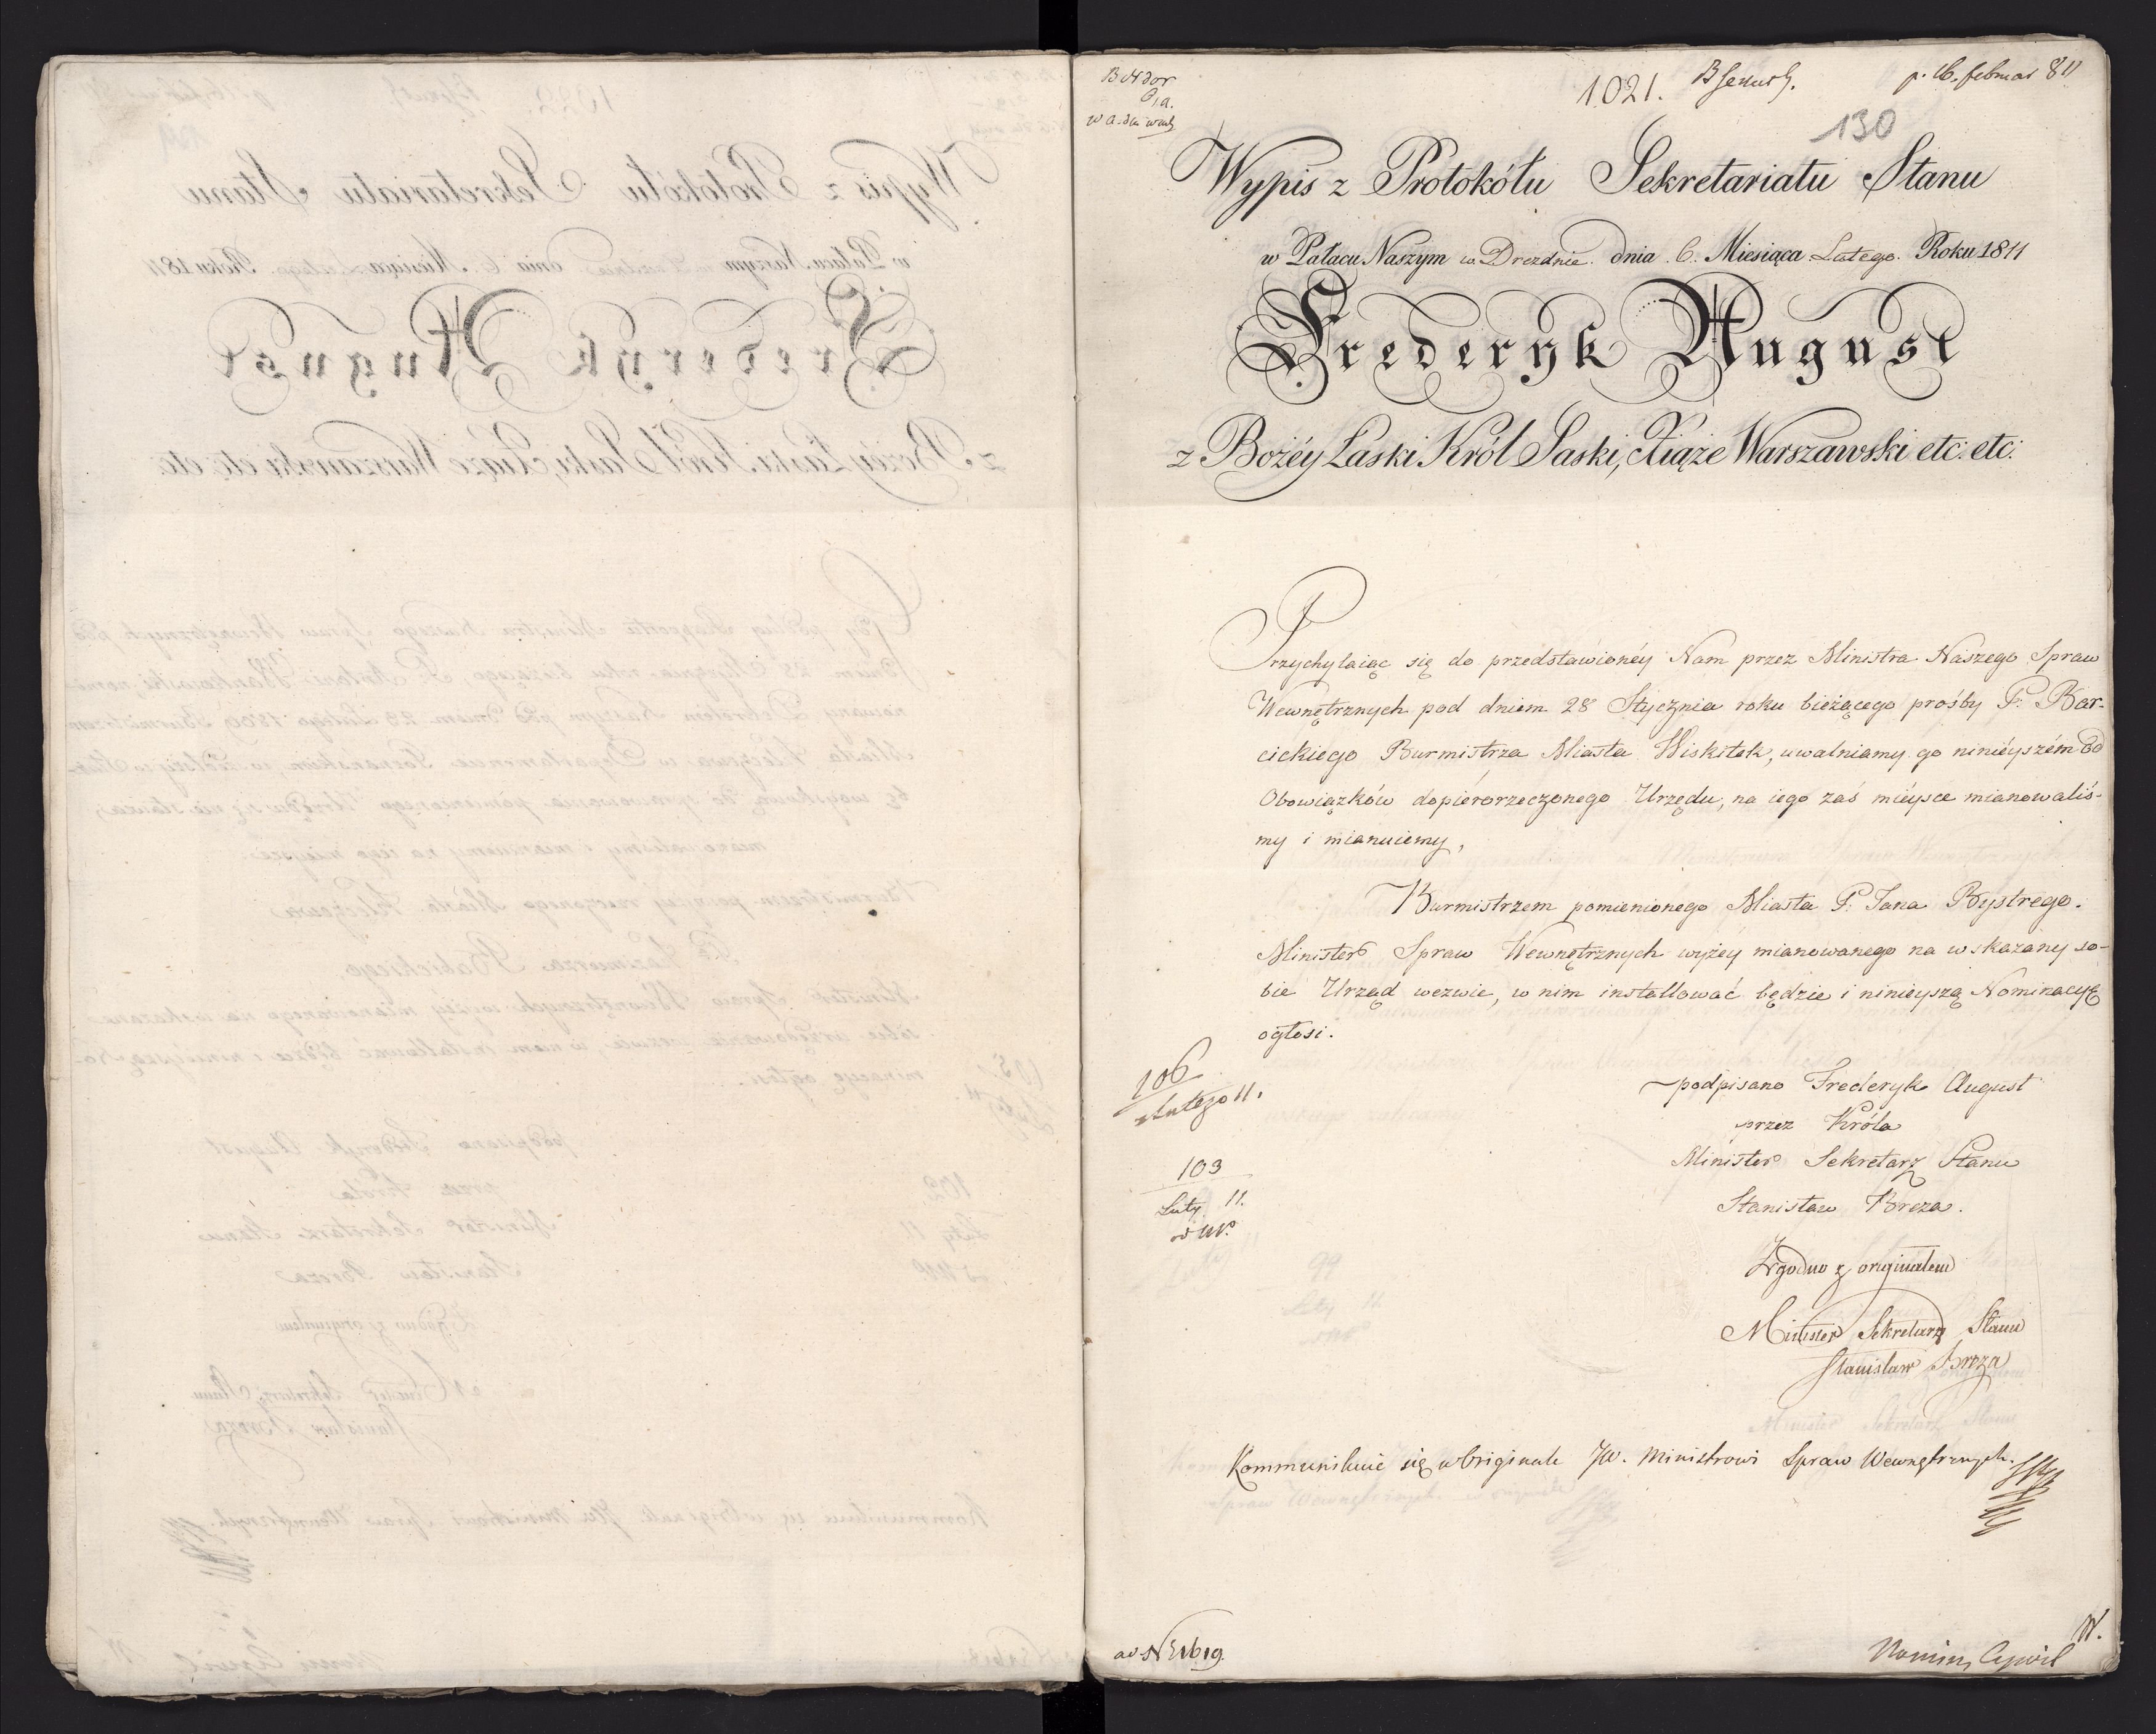 1021.
p. 16. februar 811
130
Wypis z Protokółu Sekretariatu Stanu
w Pałacu Naszym w Dreznie dnia 6. Miesiąca Lutego Roku 1811
Frederyk August
z Bożéy Łaski Król Saski, Xiąże Warszawski etc: etc:
Przychylaiąc się do przedstawionéy Nam przez Ministra Naszego Spraw
Wewnętrznych pod dniem 28 Stycznia roku bieżącego prośby P. Bar-
cickiego Burmistrza Miasta Wiskitek, uwalniamy go ninieyszém od
Obowiązków dopiérorzeczonego Urzędu, na iego zaś mieysce mianowaliś-
my i mianuiemy,
Burmistrzem pomienionego Miasta P. Jana Bystrego.
Minister Spraw Wewnętrznych wyżey mianowanego na wskazany so-
bie Urząd wezwie, w nim installować będzie i ninieyszą Nominacyę
ogłosi.
106
Lutego 11.
podpisano Frederyk August
przez Króla
Minister Sekretarz Stanu
Stanisław Breza.
103
Luty 11.
Zgodno z originałem
Minister Sekretarz Stanu
Stanisław Breza
Kommunikuie się w Originale JW. Ministrowi Spraw Wewnętrznych.
Nomin. Cywil